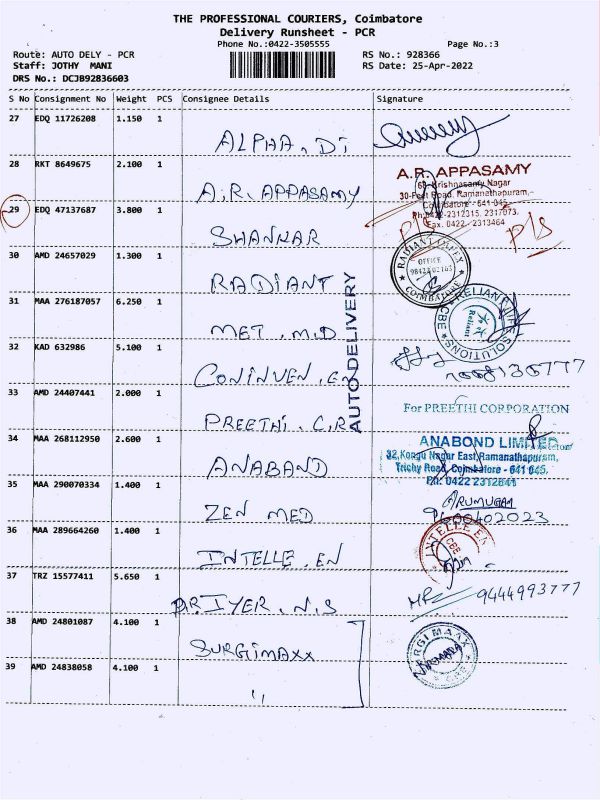 THE PROFESSIONAL COURIERS, Coimbatore
Delivery Runsheet - PCR
Phone No.:0422-3505555 Page No.:3
Route: AUTO DELY - PCR RS No.: 928366
Staff: JOTHY MANI RS Date: 25-Apr-2022
DRS No.: DCJB92836603
S No Consignment No Weight PCS Consignee Details Signature
27 EDQ 11726208 1.150 1
ALPHA. DI
28 RKT 8649675 2.100 1
A.R. APPASAMY
A.R. APPASAMY
68, Krishnasamy Nagar
30-Feet Road, Ramanathapuram,
Coimbatore - 641 045.
Ph:0422-2312315, 2317073,
Fax. 0422 - 2313464
29 EDQ 47137687 3.800 1
SHANKAR
P/S P/S
30 AMD 24657029 1.300 1
RADIANT
RADIANT
OFFICE
COIMBATORE
AUTO DELIVERY
31 MAA 276187057 6.250 1
MET. M.D
SOLUTIONS
CBE
Reliant
32 KAD 632986 5.100 1
CONINVEN. EN
33 AMD 24407441 2.000 1
PREETHI. C.R
For PREETHI CORPORATION
34 MAA 268112950 2.600 1
ANABAND
ANABOND LIMITED
32, Kongu Nagar East, Ramanathapuram,
Trichy Road, Coimbatore - 641 045.
PH: 0422 2312841
35 MAA 290070334 1.400 1
ZEN MED
ARUMUGAM
9600402023
36 MAA 289664260 1.400 1
INTELLE. EN
INTELLE EN
CBE
37 TRZ 15577411 5.650 1
DR. IYER. N.S
9444993777
38 AMD 24801087 4.100 1
SURGIMAXX
SURGIMAXX
CBE
39 AMD 24838058 4.100 1
"